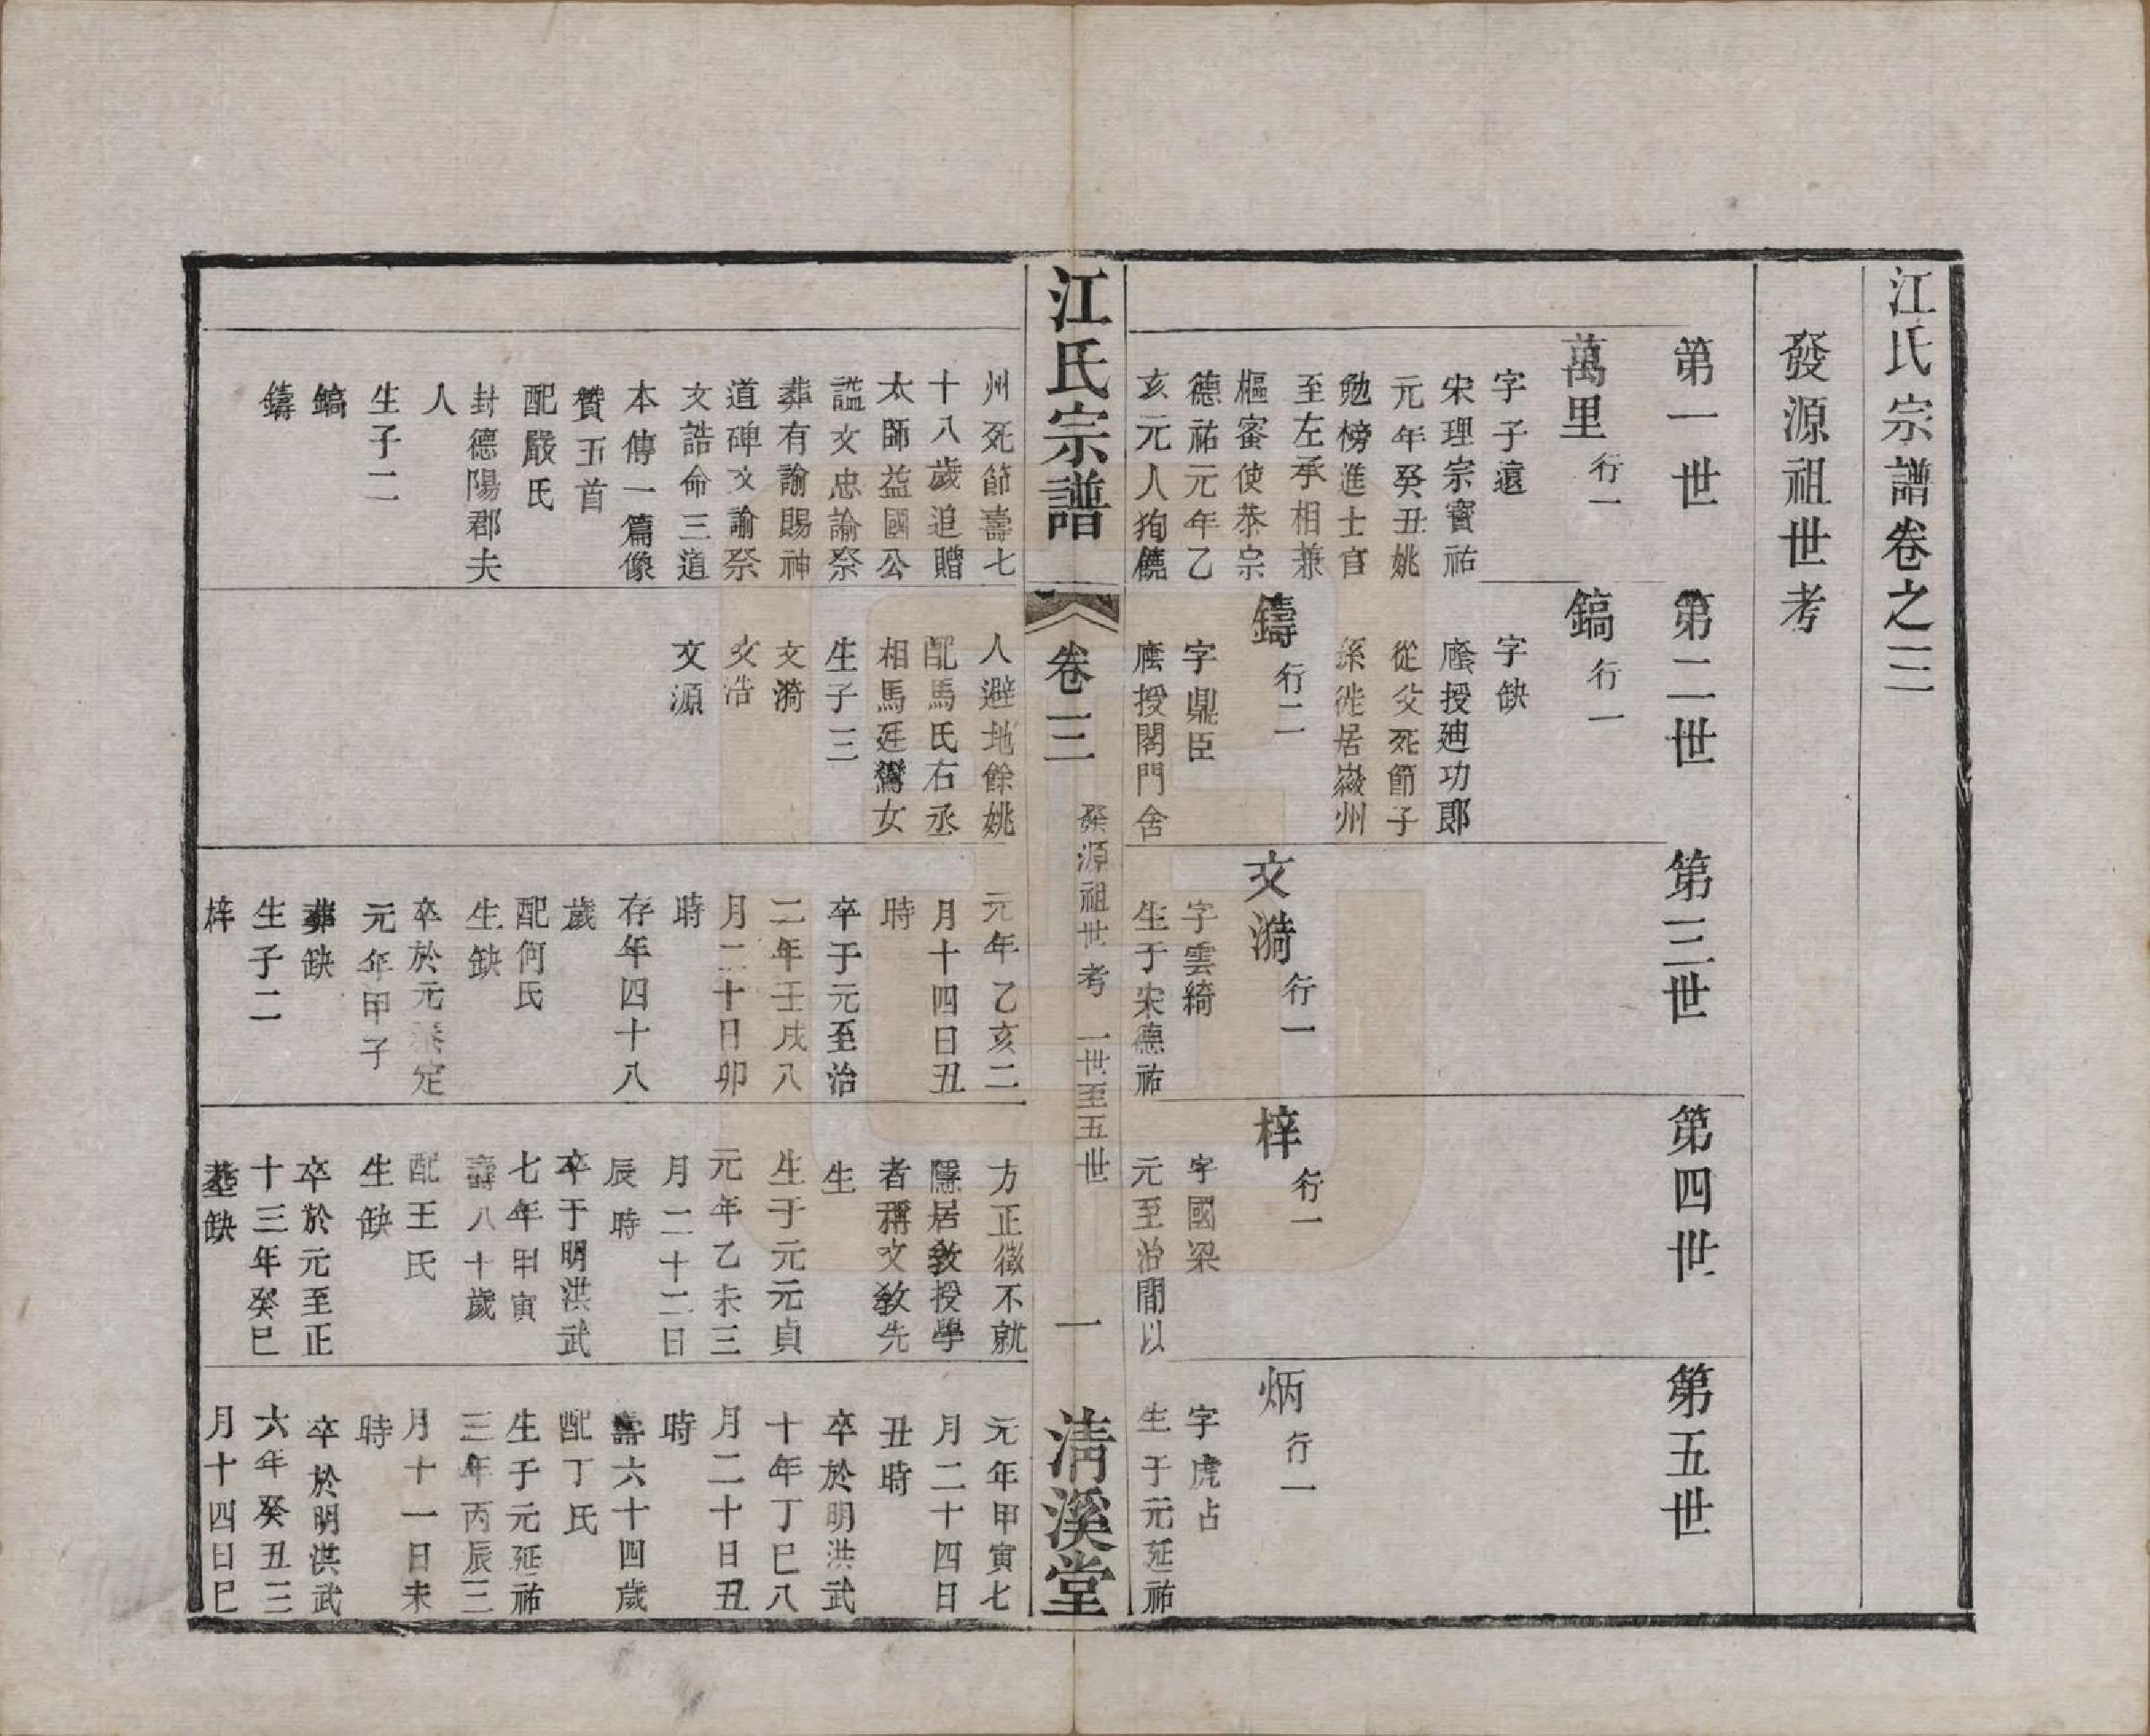 江氏宗譜卷之三
發源祖世考
第一世
萬里 行一
字子遠
宋理宗寶祐
元年癸丑姚
勉榜進士官
至左丞相兼
樞密使恭宗
德祐元年乙
亥元人狥饒
州死節壽七
十八歲追贈
太師益國公
諡文忠諭祭
葬有諭賜神
道碑文諭祭
文誥命三道
本傳一篇像
贊五首
配嚴氏
封德陽郡夫
人
生子二
鎬
鑄
第二世
鎬 行一
字缺
廕授迪功郎
從父死節子
孫徙居嶶州
鑄 行二
字鼎臣
廕授閣門舍
人避地餘姚
配馬氏右丞
相馬廷鸞女
生子三
文漪
文浩
文源
第三世
文漪 行一
字雲綺
生于宋德祐
元年乙亥二
月十四日丑
時
卒于元至治
二年壬戌八
月二十日卯
時
存年四十八
歲
配何氏
生缺
卒於元泰定
元年甲子
葬缺
生子二
梓
第四世
梓 行一
字國梁
元至治間以
方正徵不就
隱居教授學
者稱文敎先
生
生于元元貞
元年乙未三
月二十二日
辰時
卒于明洪武
七年甲寅
壽八十歲
配王氏
生缺
卒於元至正
十三年癸巳
墓缺
第五世
炳 行一
字虎占
生于元延祐
元年甲寅七
月二十四日
丑時
卒於明洪武
十年丁巳八
月二十日丑
時
壽六十四歲
配丁氏
生于元延祐
三年丙辰三
月十一日未
時
卒於明洪武
六年癸丑三
月十四日巳
江氏宗譜
卷三
發源祖世考 一世至五世
一
淸溪堂